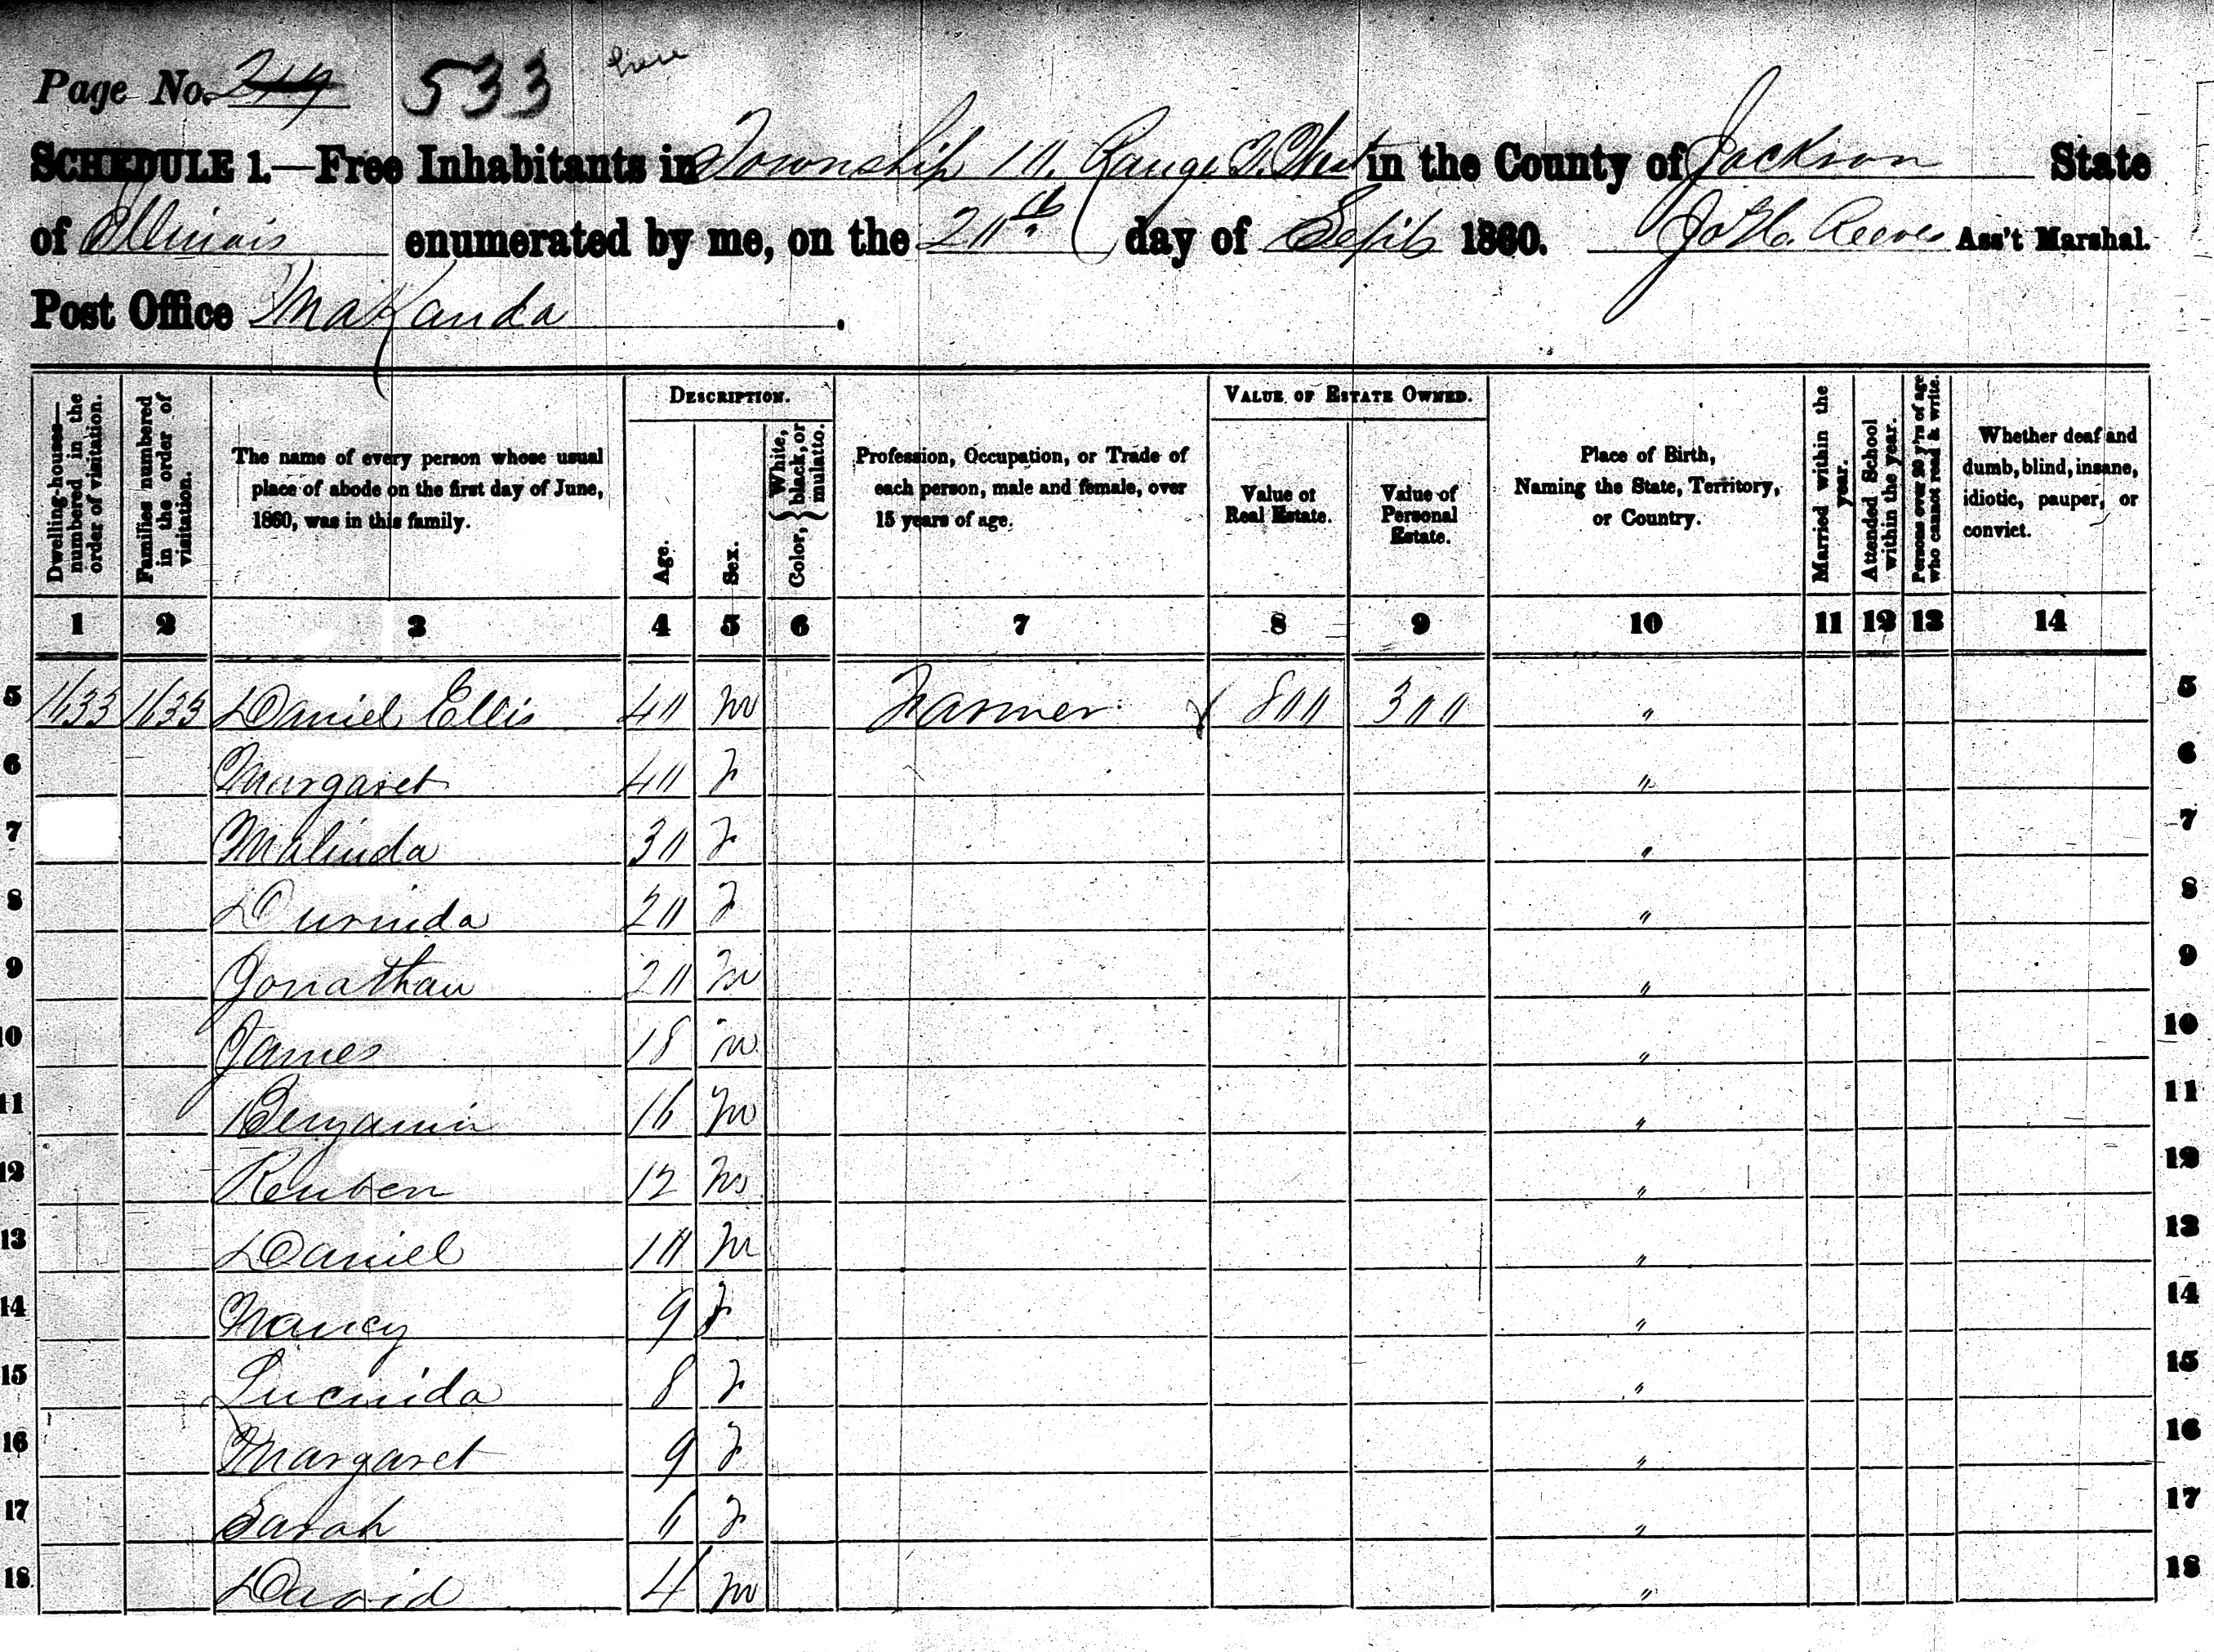 Page No. 219 533 here
SCHEDULE 1.—Free Inhabitants in Township 10. Range 2. West in the County of Jackson State
of Illinois enumerated by me, on the 20th. day of Septb 1860. Jo H. Reeves Ass't Marshal.
Post Office MaKanda.
Dwelling-houses—numbered in the order of visitation.
Families numbered in the order of visitation.
The name of every person whose usual place of abode on the first day of June, 1860, was in this family.
DESCRIPTION.
Age.
Sex.
Color, { White, black, or mulatto. }
Profession, Occupation, or Trade of each person, male and female, over 15 years of age.
VALUE OF ESTATE OWNED.
Value of Real Estate.
Value of Personal Estate.
Place of Birth, Naming the State, Territory, or Country.
Married within the year.
Attended School within the year.
Persons over 20 y'rs of age who cannot read & write.
Whether deaf and dumb, blind, insane, idiotic, pauper, or convict.
1 2 3 4 5 6 7 8 9 10 11 12 13 14
5 1633 1633 Daniel Ellis 40 m Farmer 800 300 " 5
6 Margaret 40 F " 6
7 Malinda 30 F " 7
8 Durinda 20 F " 8
9 Jonathan 20 m " 9
10 James 18 m " 10
11 Benjamin 16 m " 11
12 Reuben 12 m " 12
13 Daniel 10 m " 13
14 Nancy 9 F " 14
15 Lucinda 8 F " 15
16 Margaret 9 F " 16
17 Sarah 6 F " 17
18 David 4 m " 18